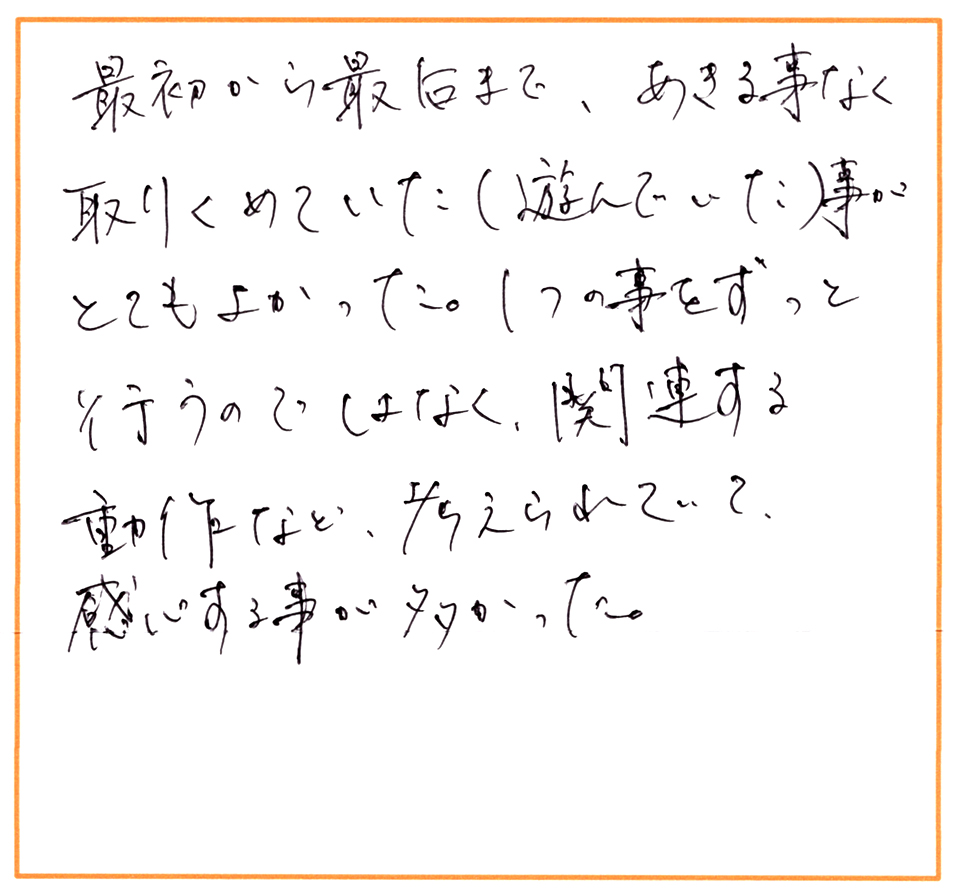 最初から最后まで、あきる事なく
取りくめていた(遊んでいた)事が
とてもよかった。1つの事をずっと
行うのではなく、関連する
動作など、考えられていて、
感心する事が多かった。